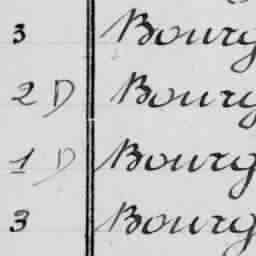 3 Bourg
2 D Bourg
1 D Bourg
3 Bourg